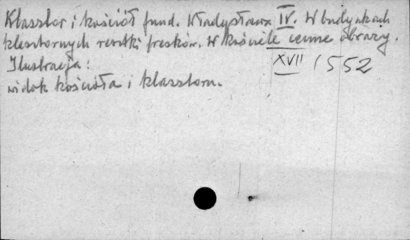 Klasztor i kościół fund. Władysława IV. W budynkach
klasztornych resztki fresków. W kościele cenne obrazy.
Ilustracja: XVII /552
widok kościoła i klasztoru.